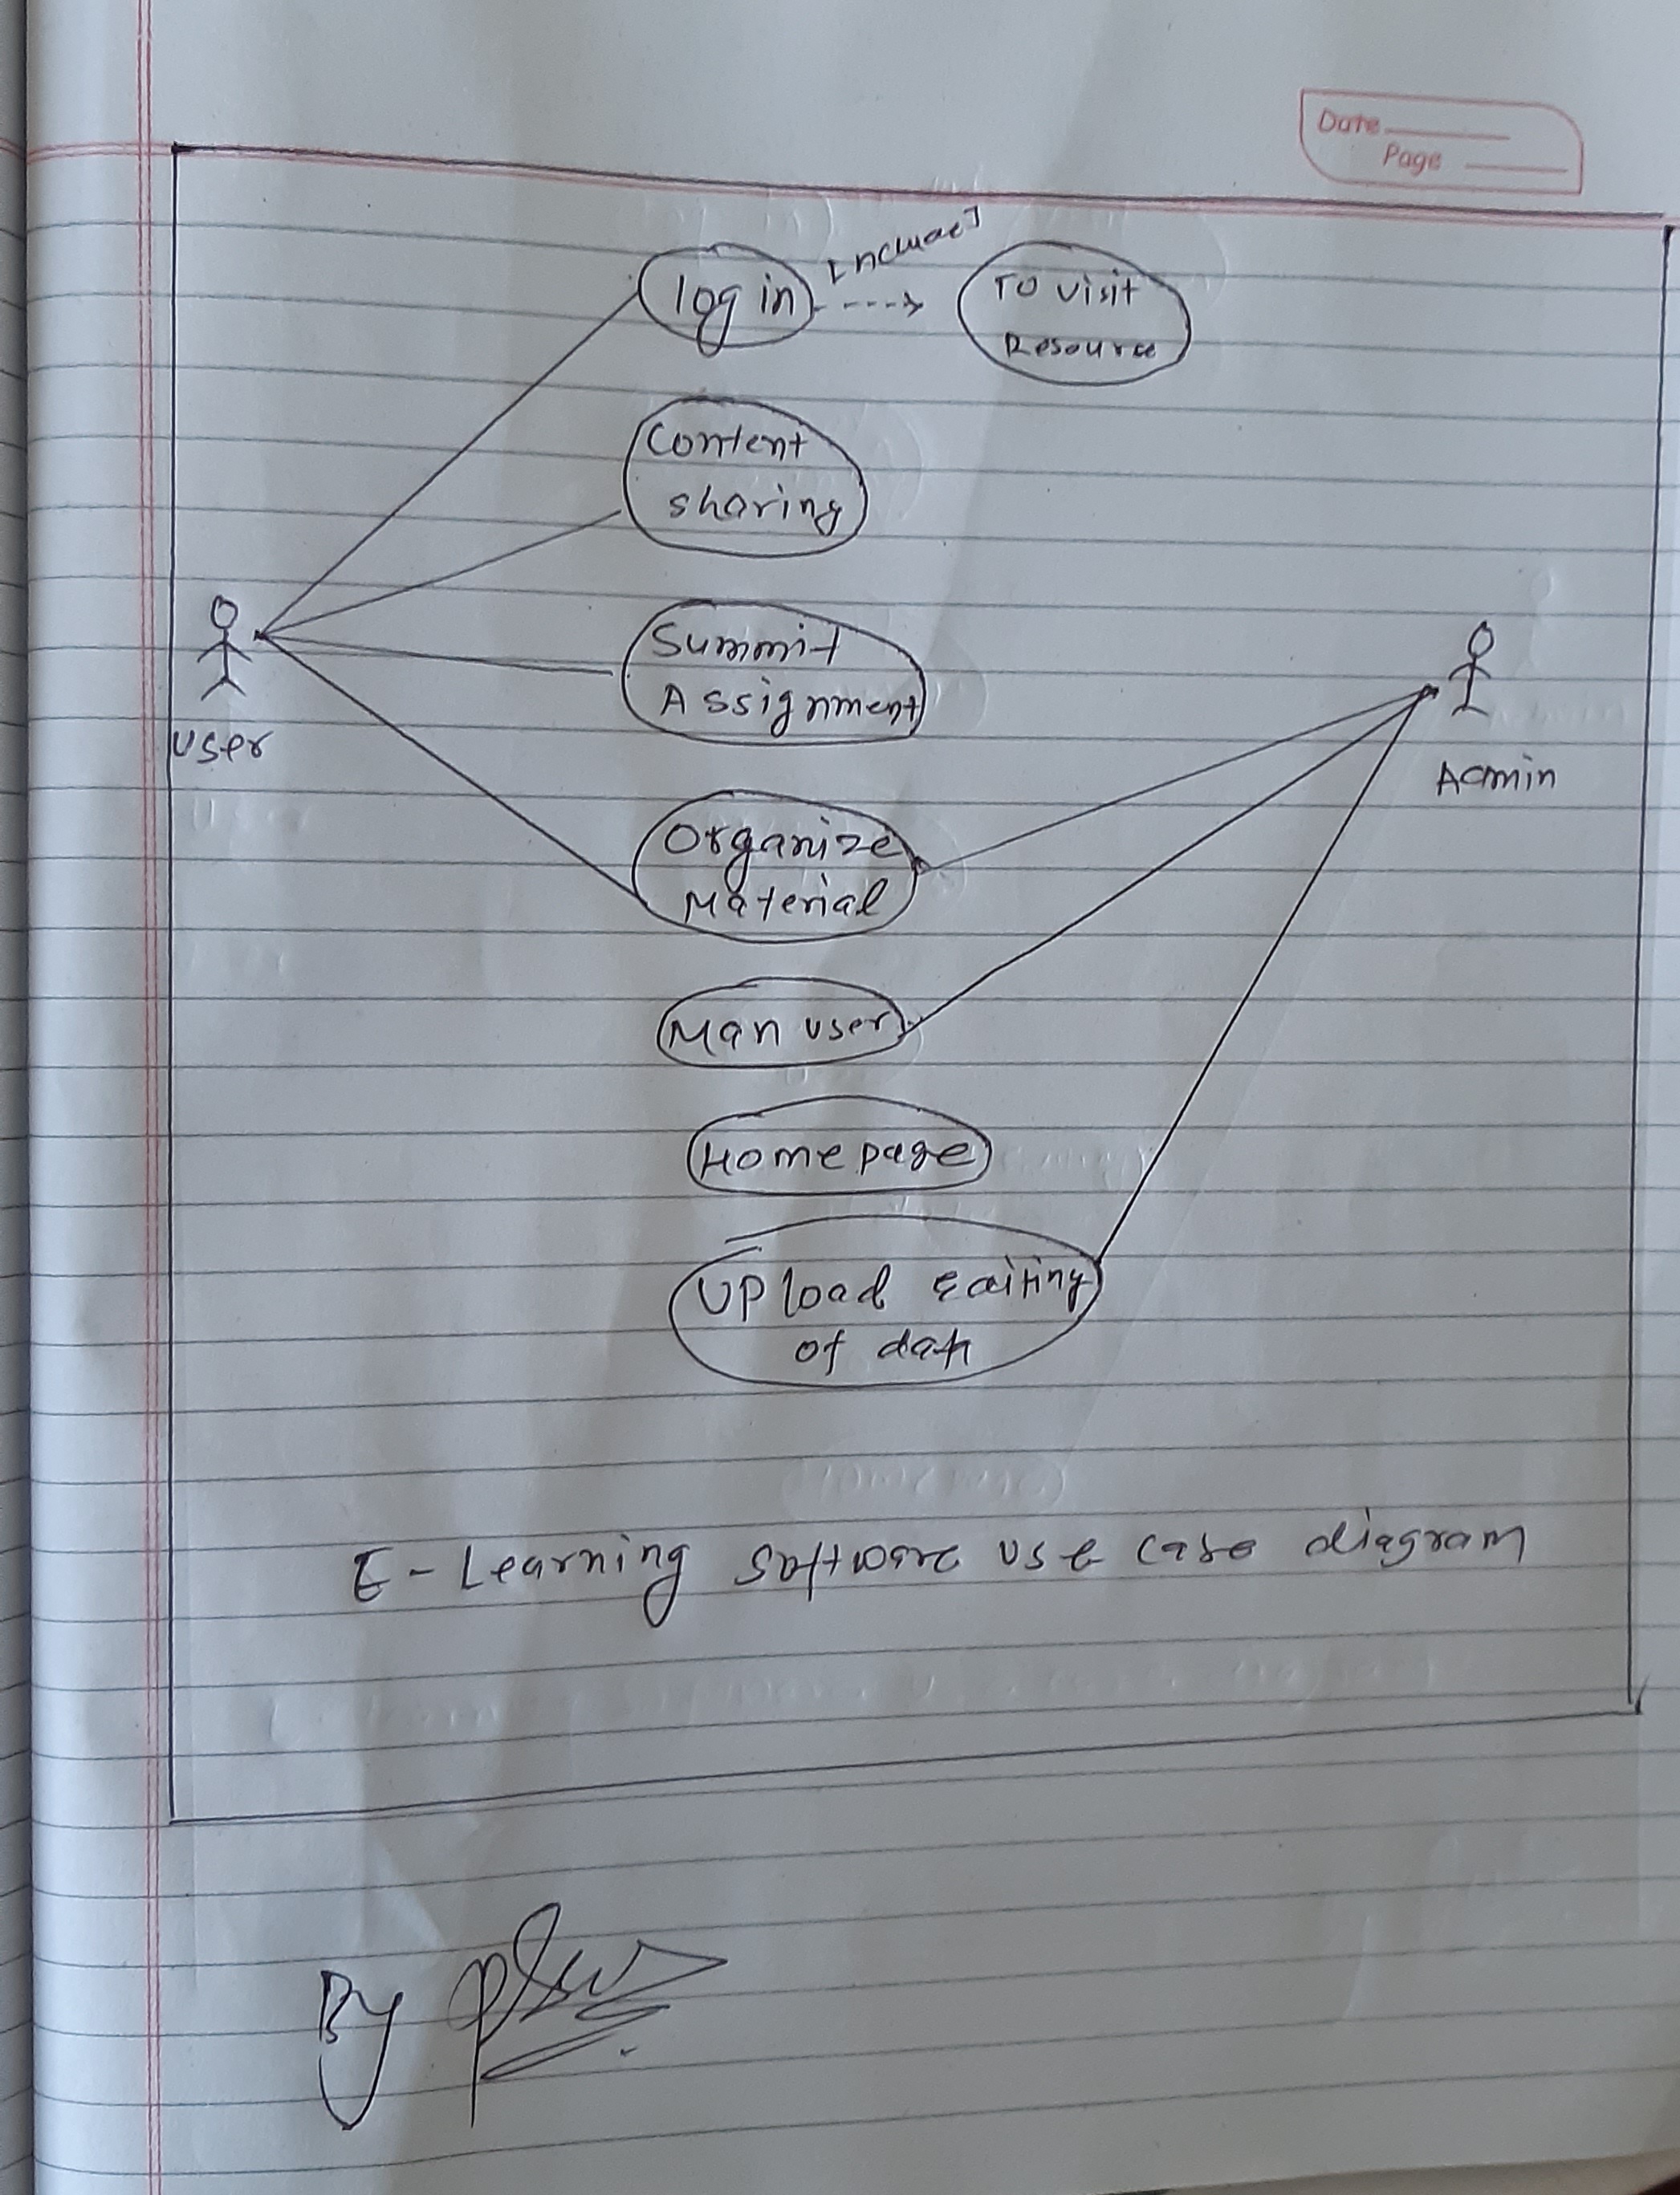 Date
Page
log in
[Include]
To visit
Resource
Content
sharing
Summit
Assignment
User
Admin
Organize
Material
Man user
Home page
Upload Editing
of data
E-Learning Software use case diagram
By